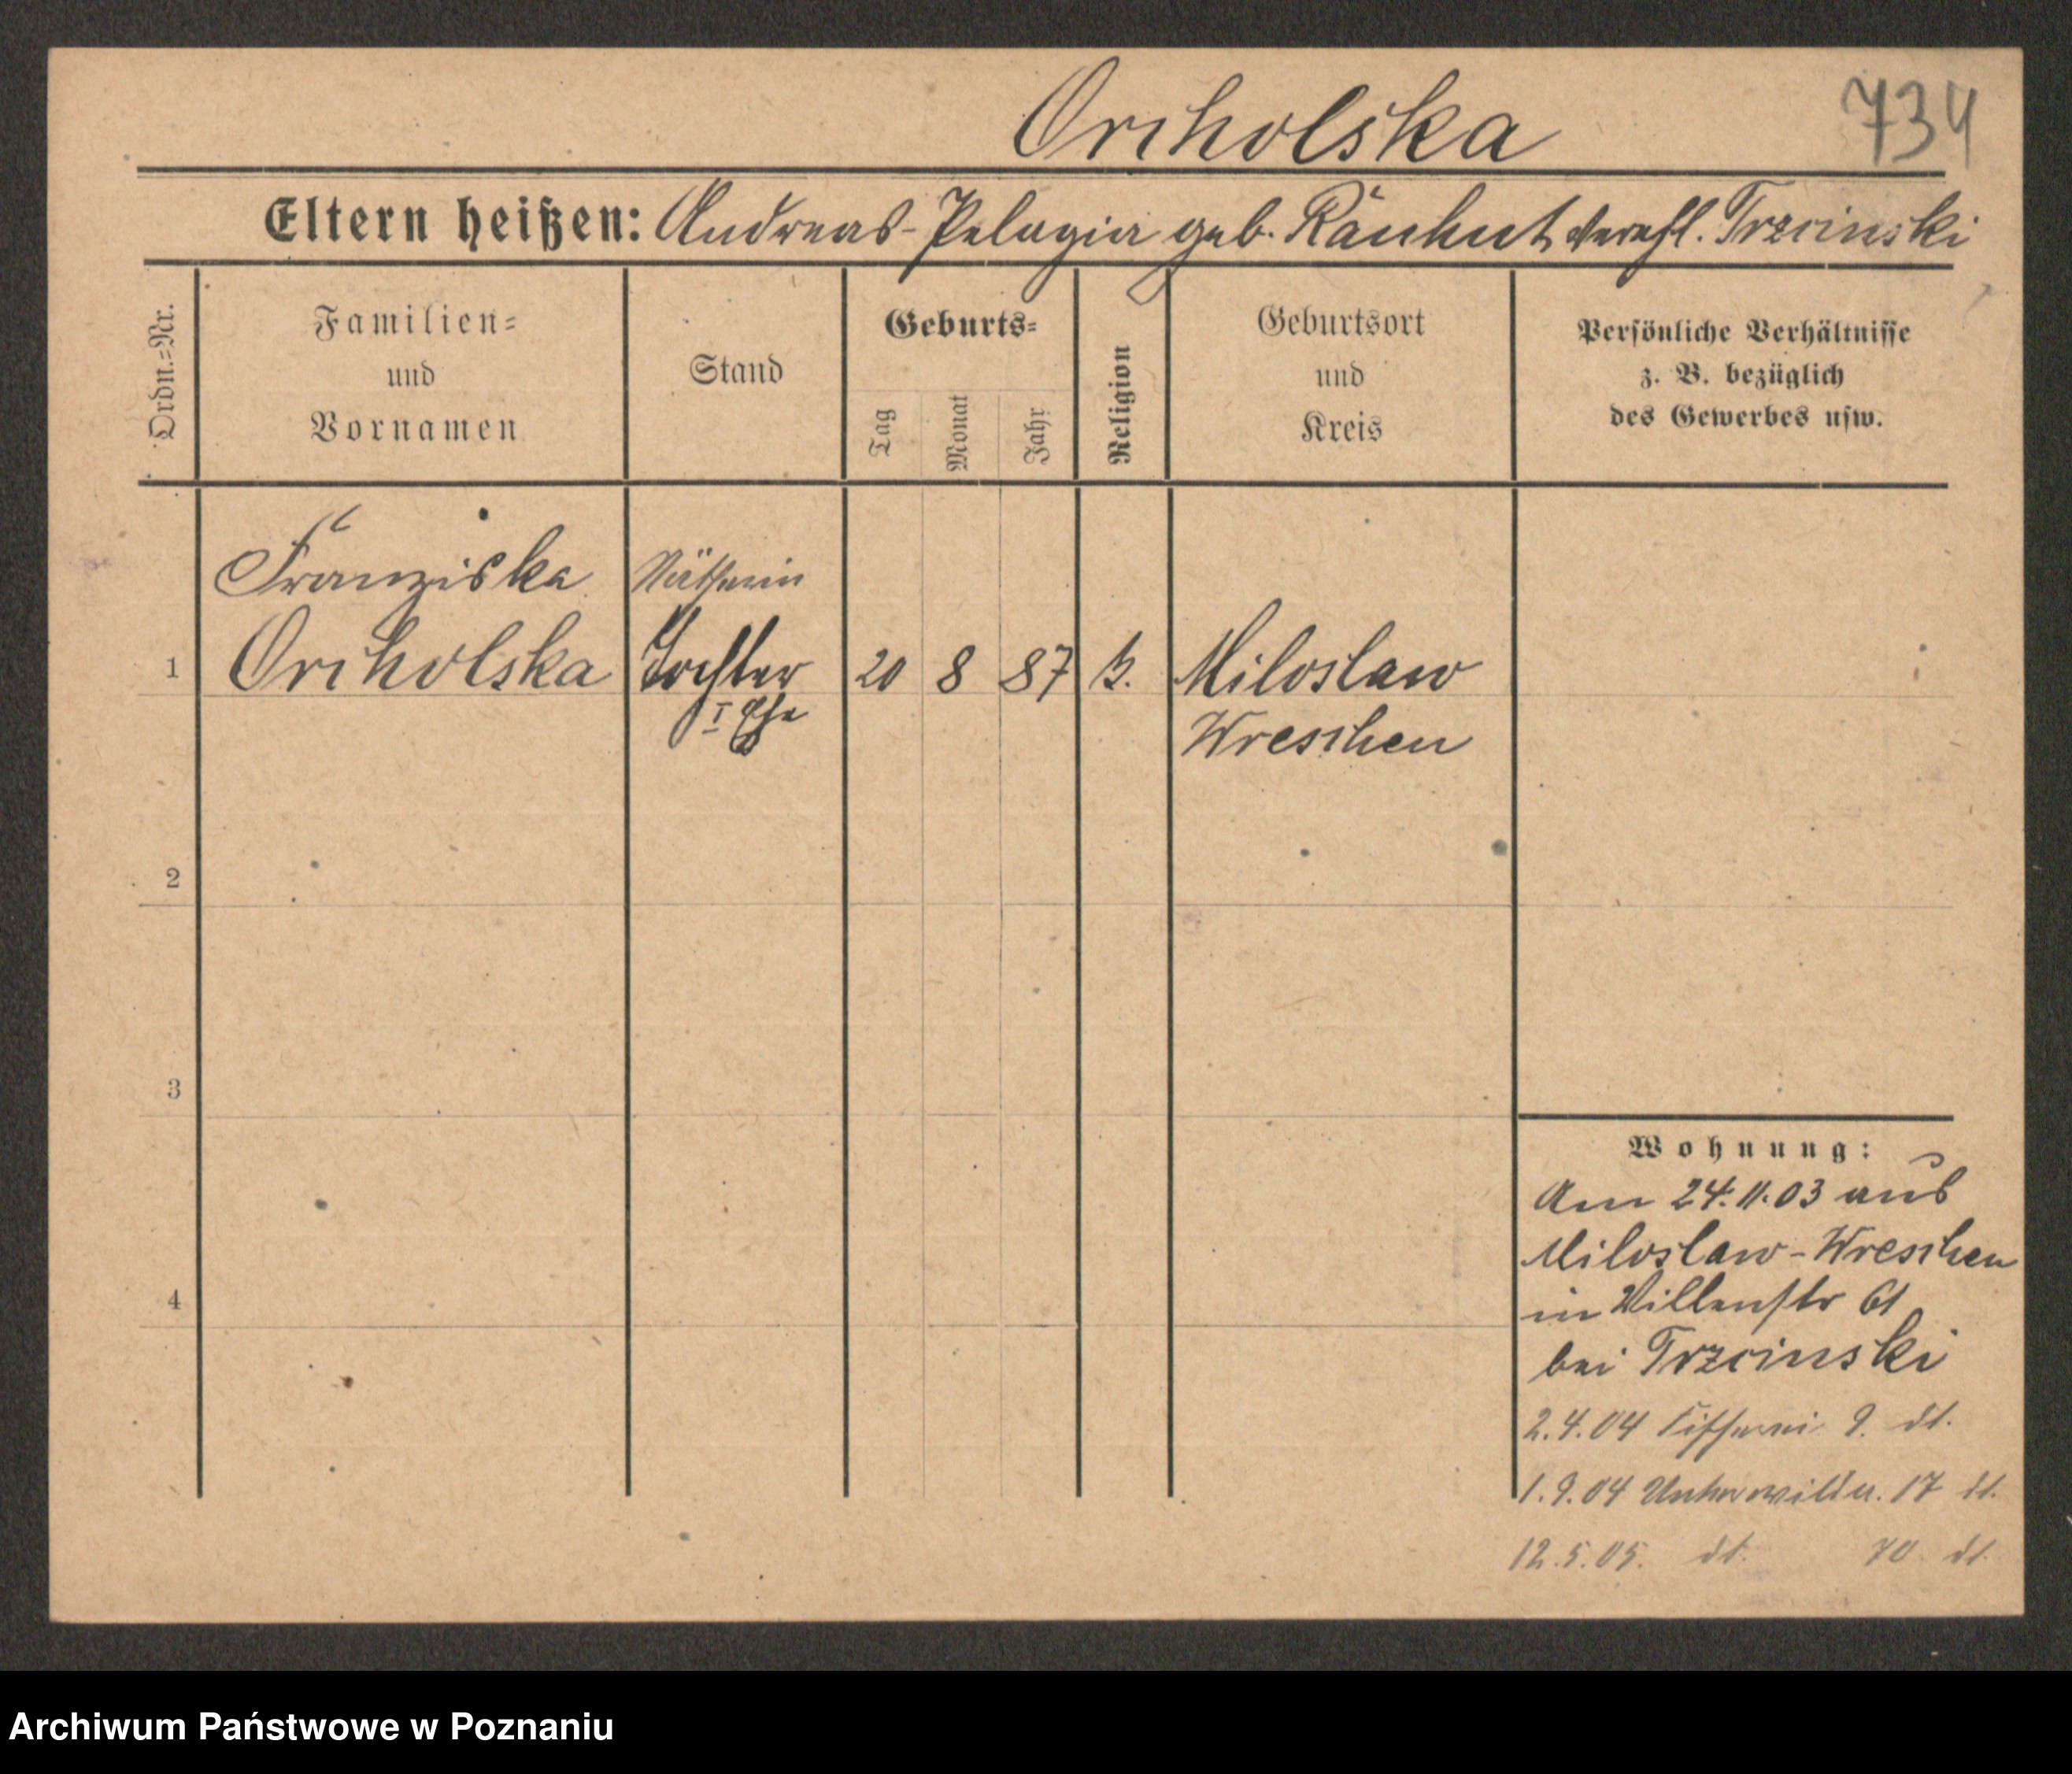 Orcholska
734
Eltern heißen: Andreas - Pelagia geb. Räuhut verehl. Trzcinski
Ordn.=Nr.
Familien=
und
Vornamen
Stand
Geburts=
Tag
Monat
Jahr
Religion
Geburtsort
und
Kreis
Persönliche Verhältnisse
z. B. bezüglich
des Gewerbes usw.
Franziska Nätherin
1 Orcholska Tochter 20 8 87 k. Miloslaw
I Ehe Wreschen
2
3
4
Wohnung:
Am 24.11.03 aus
Miloslaw - Wreschen
in Villenstr 61
bei Trzcinski
2.4.04 9. dt.
1.9.04 Unterwilda. 17 dt.
12.5.05. dt. 70 dt.
Archiwum Państwowe w Poznaniu